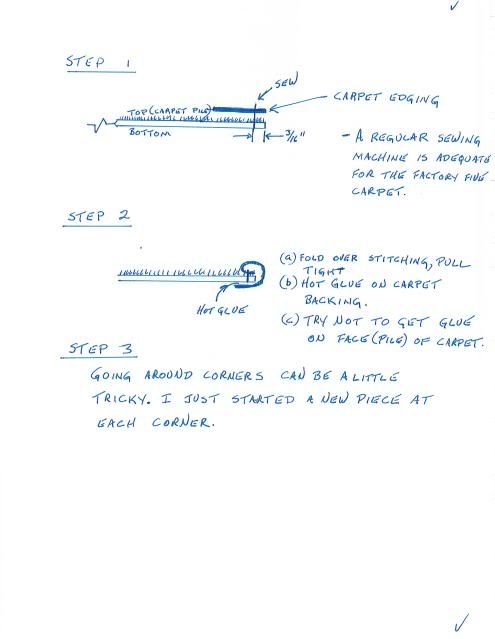 STEP 1
SEW
TOP (CARPET PILE)
CARPET EDGING
BOTTOM
3/16"
- A REGULAR SEWING
MACHINE IS ADEQUATE
FOR THE FACTORY FIVE
CARPET.
STEP 2
(a) FOLD OVER STITCHING, PULL
TIGHT
(b) HOT GLUE ON CARPET
BACKING.
HOT GLUE
(c) TRY NOT TO GET GLUE
ON FACE (PILE) OF CARPET.
STEP 3
GOING AROUND CORNERS CAN BE A LITTLE
TRICKY. I JUST STARTED A NEW PIECE AT
EACH CORNER.